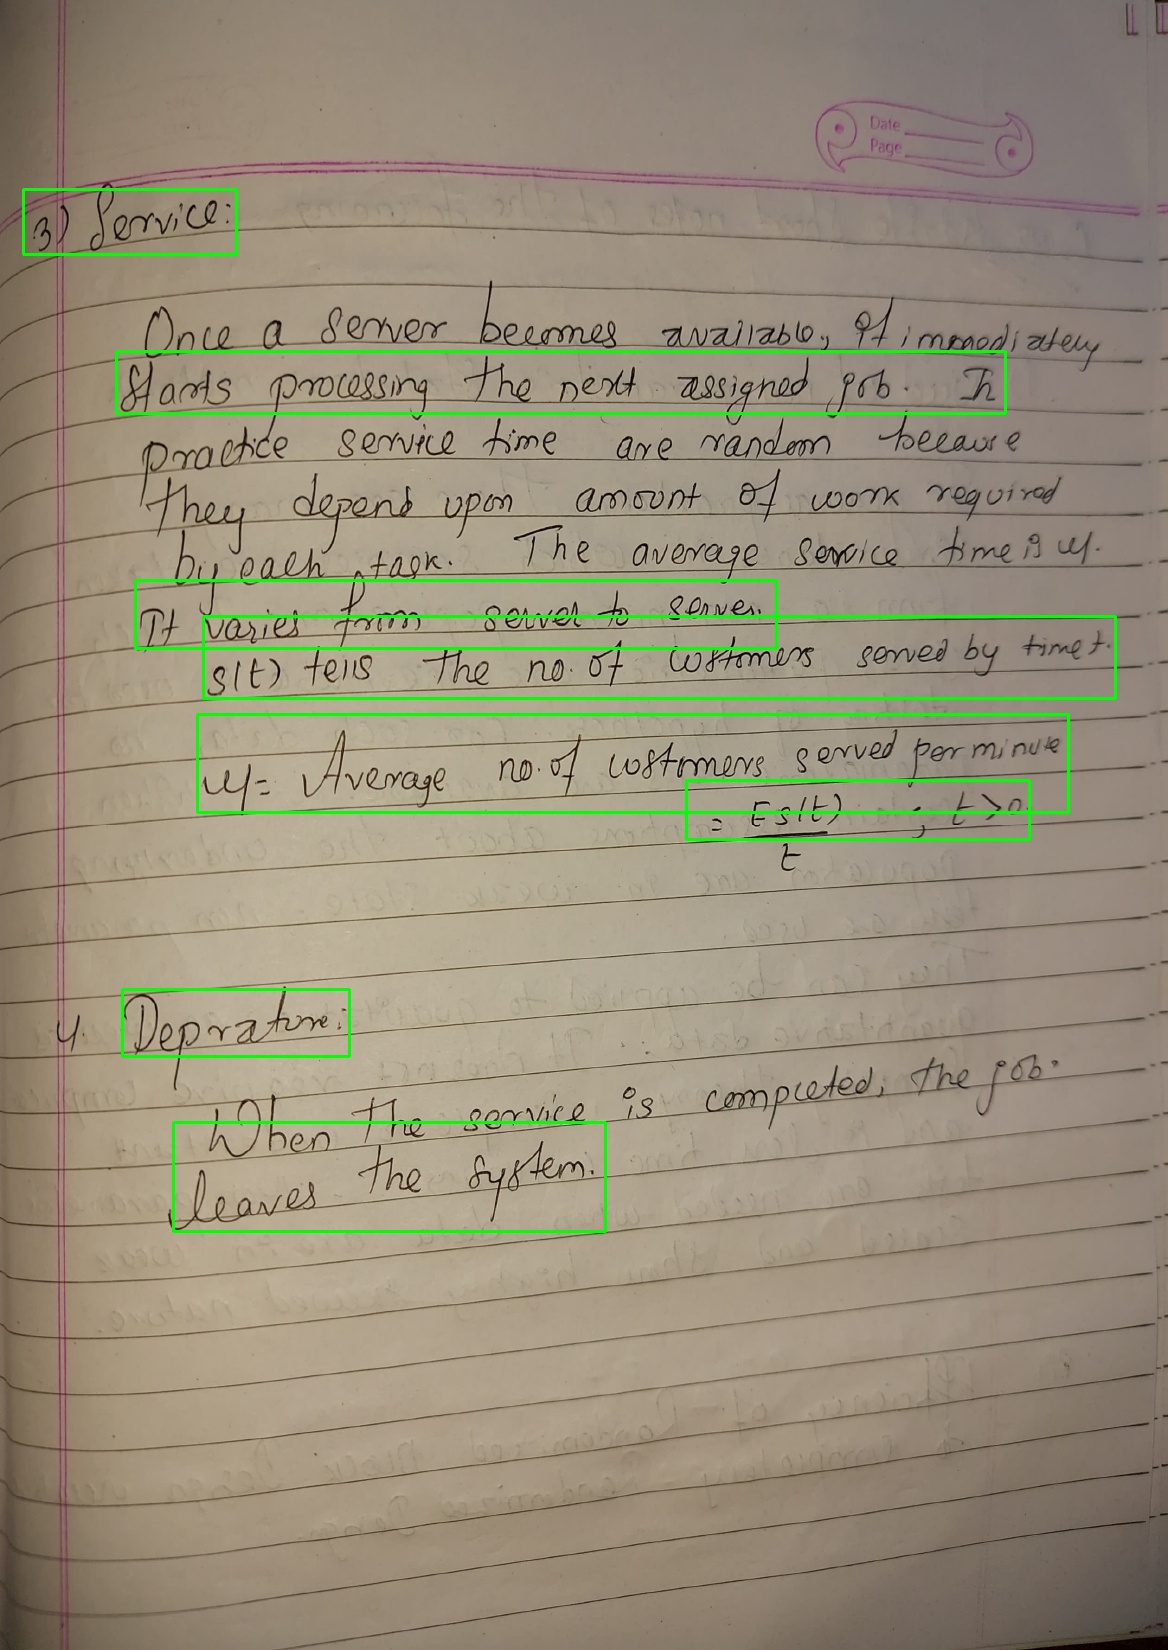 Date
Page
3) Service:
Once a server becomes available, it immediately
starts processing the next assigned job. In
practice service time are random because
they depend upon amount of work required
by each task. The average service time is μ.
It varies from server to server.
s(t) tells the no. of customers served by time t.
μ = Average no. of customers served per minute
= E s(t) / t ; t > 0.
4. Deprature:
When the service is completed, the job.
leaves the system.